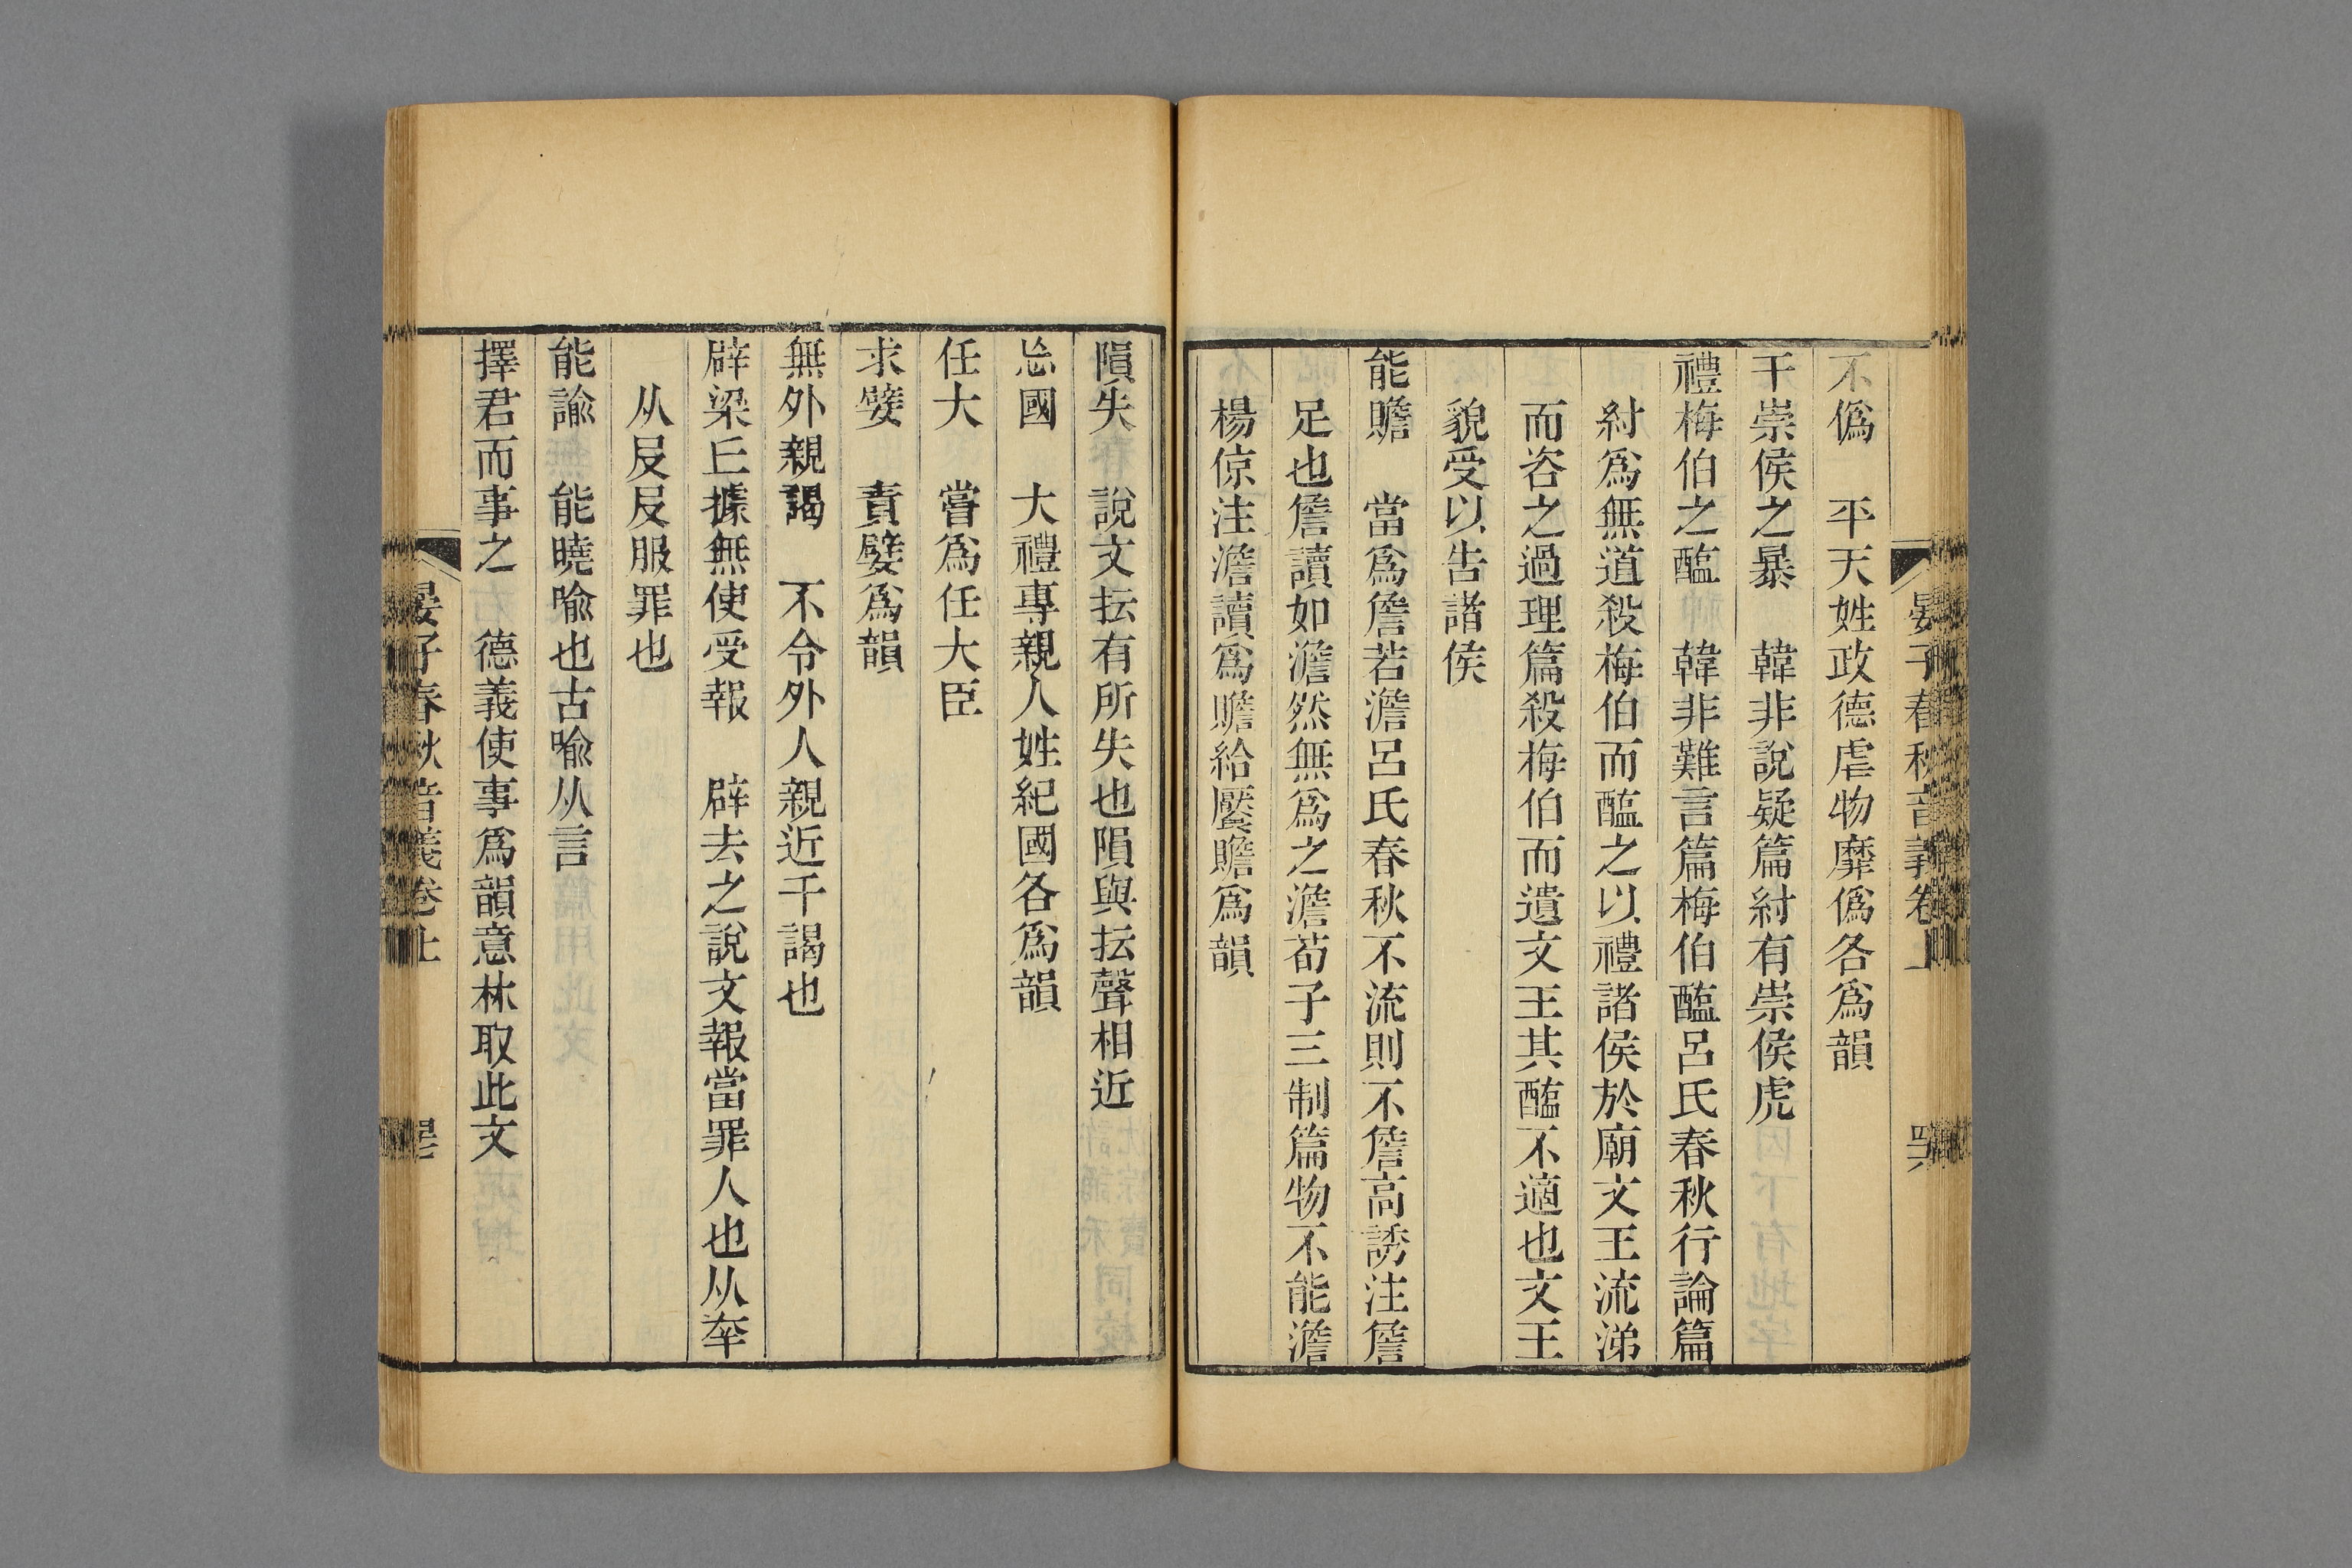 晏子春秋音義卷上
不僞　平天姓政德虐物靡僞各爲韻
干崇侯之暴　韓非說疑篇紂有崇侯虎
禮梅伯之醢　韓非難言篇梅伯醢呂氏春秋行論篇
紂爲無道殺梅伯而醢之以禮諸侯於廟文王流涕
而咨之過理篇殺梅伯而遺文王其醢不適也文王
貌受以告諸侯
能贍　當爲詹若澹呂氏春秋不流則不詹高誘注詹
足也詹讀如澹然無爲之澹荀子三制篇物不能澹
楊倞注澹讀爲贍給饜贍爲韻
隕失　說文抎有所失也隕與抎聲相近
怂國　大禮專親人姓紀國各爲韻
任大　嘗爲任大臣
求嬖　責嬖爲韻
無外親謁　不令外人親近干謁也
辟梁丘據無使受報　辟去之說文報當罪人也从㚔
从𠬝𠬝服罪也
能諭　能曉喻也古喻从言
擇君而事之　德義使事爲韻意林取此文
晏子春秋音義卷上